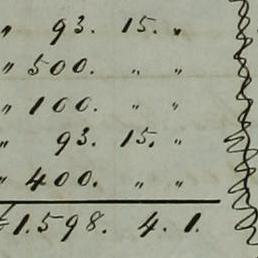 " 93. 15. "
" 500. " "
" 100. " "
" 93. 15. "
" 400. " "
1.598. 4. 1.